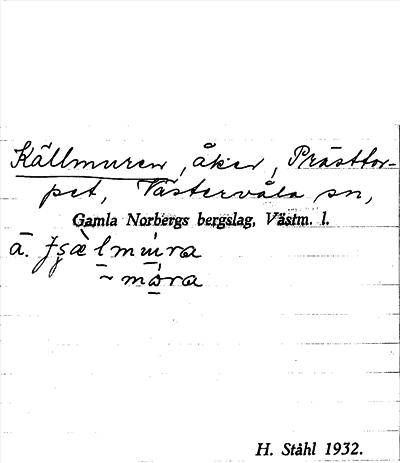 Källmuren, åker, Prästtor-
pet, Västervåla sn,
Gamla Norbergs bergslag, Västm. l.
H. Ståhl 1932.